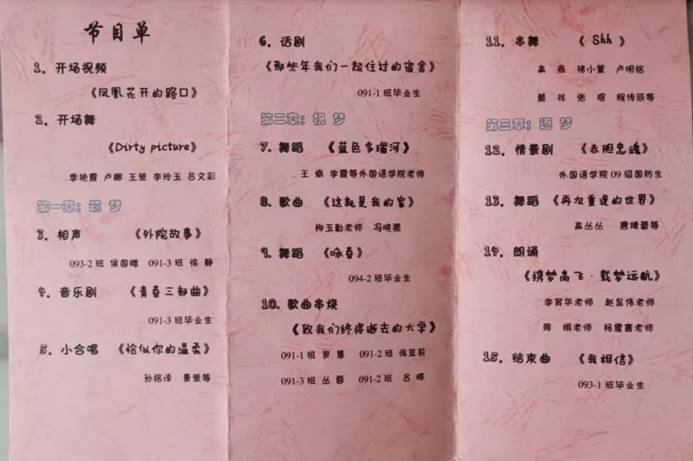 节目单
1、开场视频
《凤凰花开的路口》
2、开场舞
《Dirty picture》
李艳霞 卢娜 王莹 李玲玉 吕文彩
第一章：筑 梦
3、相声 《外院故事》
093-2 班 徐国赠 091-3 班 徐 静
4、音乐剧 《青春三部曲》
091-3 班毕业生
5、小合唱 《恰似你的温柔》
孙铭泽 景莹等
6、话剧
《那些年我们一起住过的宿舍》
091-1 班毕业生
第二章：祝 梦
7、舞蹈 《蓝色多瑙河》
王 南 李霞等外国语学院老师
8、歌曲 《这就是我的家》
柳玉勤老师 冯晓茜
9、舞蹈 《咏春》
094-2 班毕业生
10、歌曲串烧
《致我们终将逝去的大学》
091-1 班 罗 慧 091-2 班 徐亚莉
091-3 班 丛 蓉 091-2 班 吕 娜
11、串舞 《 Shh 》
高 燕 褚小萱 卢明铭
祥 张 琨 程传辰等
第三章：逐 梦
12、情景剧 《赤胆忠魂》
外国语学院 09 级国防生
13、舞蹈 《再次重逢的世界》
高丛丛
14、朗诵
《携梦高飞·载梦远航》
李育华老师 赵昱伟老师
周 娟老师 杨震寰老师
15、结束曲 《我相信》
093-1 班毕业生